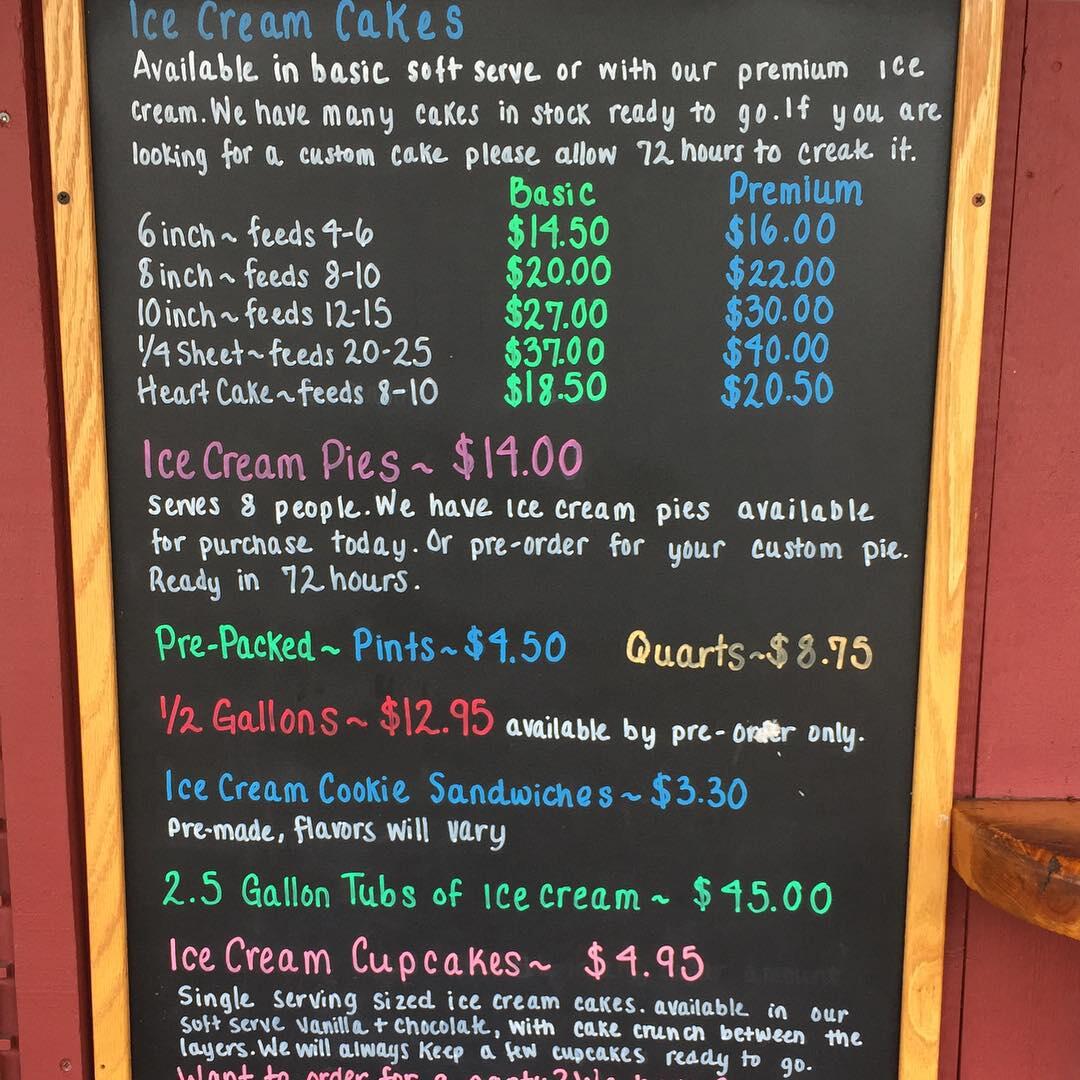 Ice Cream Cakes
Available in basic soft serve or with our premium ice
cream. We have many cakes in stock ready to go. If you are
looking for a custom cake please allow 72 hours to create it.
Basic Premium
6 inch ~ feeds 4-6 $14.50 $16.00
8 inch ~ feeds 8-10 $20.00 $22.00
10 inch ~ feeds 12-15 $27.00 $30.00
1/4 Sheet ~ feeds 20-25 $37.00 $40.00
Heart Cake ~ feeds 8-10 $18.50 $20.50
Ice Cream Pies ~ $14.00
serves 8 people. We have ice cream pies available
for purchase today. Or pre-order for your custom pie.
Ready in 72 hours.
Pre-Packed ~ Pints ~ $4.50 Quarts ~ $8.75
1/2 Gallons ~ $12.95 available by pre-order only.
Ice Cream Cookie Sandwiches ~ $3.30
Pre-made, flavors will vary
2.5 Gallon Tubs of ice cream ~ $45.00
Ice Cream Cupcakes ~ $4.95
Single serving sized ice cream cakes. available in our
soft serve vanilla + chocolate, with cake crunch between the
layers. We will always keep a few cupcakes ready to go.
Want to order for a party? We